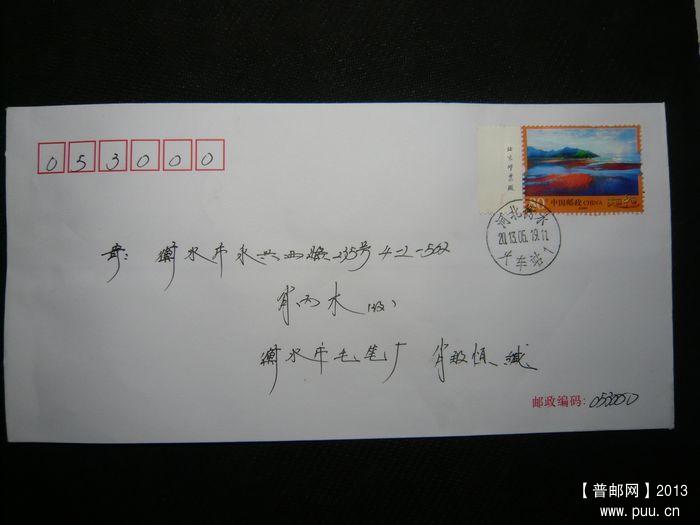 053000
北京邮票厂
80 中国邮政 CHINA
河北衡水
2013.05.19.11
火车站1
寄: 衡水市永兴西路235号4-2-502
肖丙水(收)
衡水市毛笔厂 肖毅恒 缄
邮政编码: 053000
【普邮网】2013
www.puu.cn